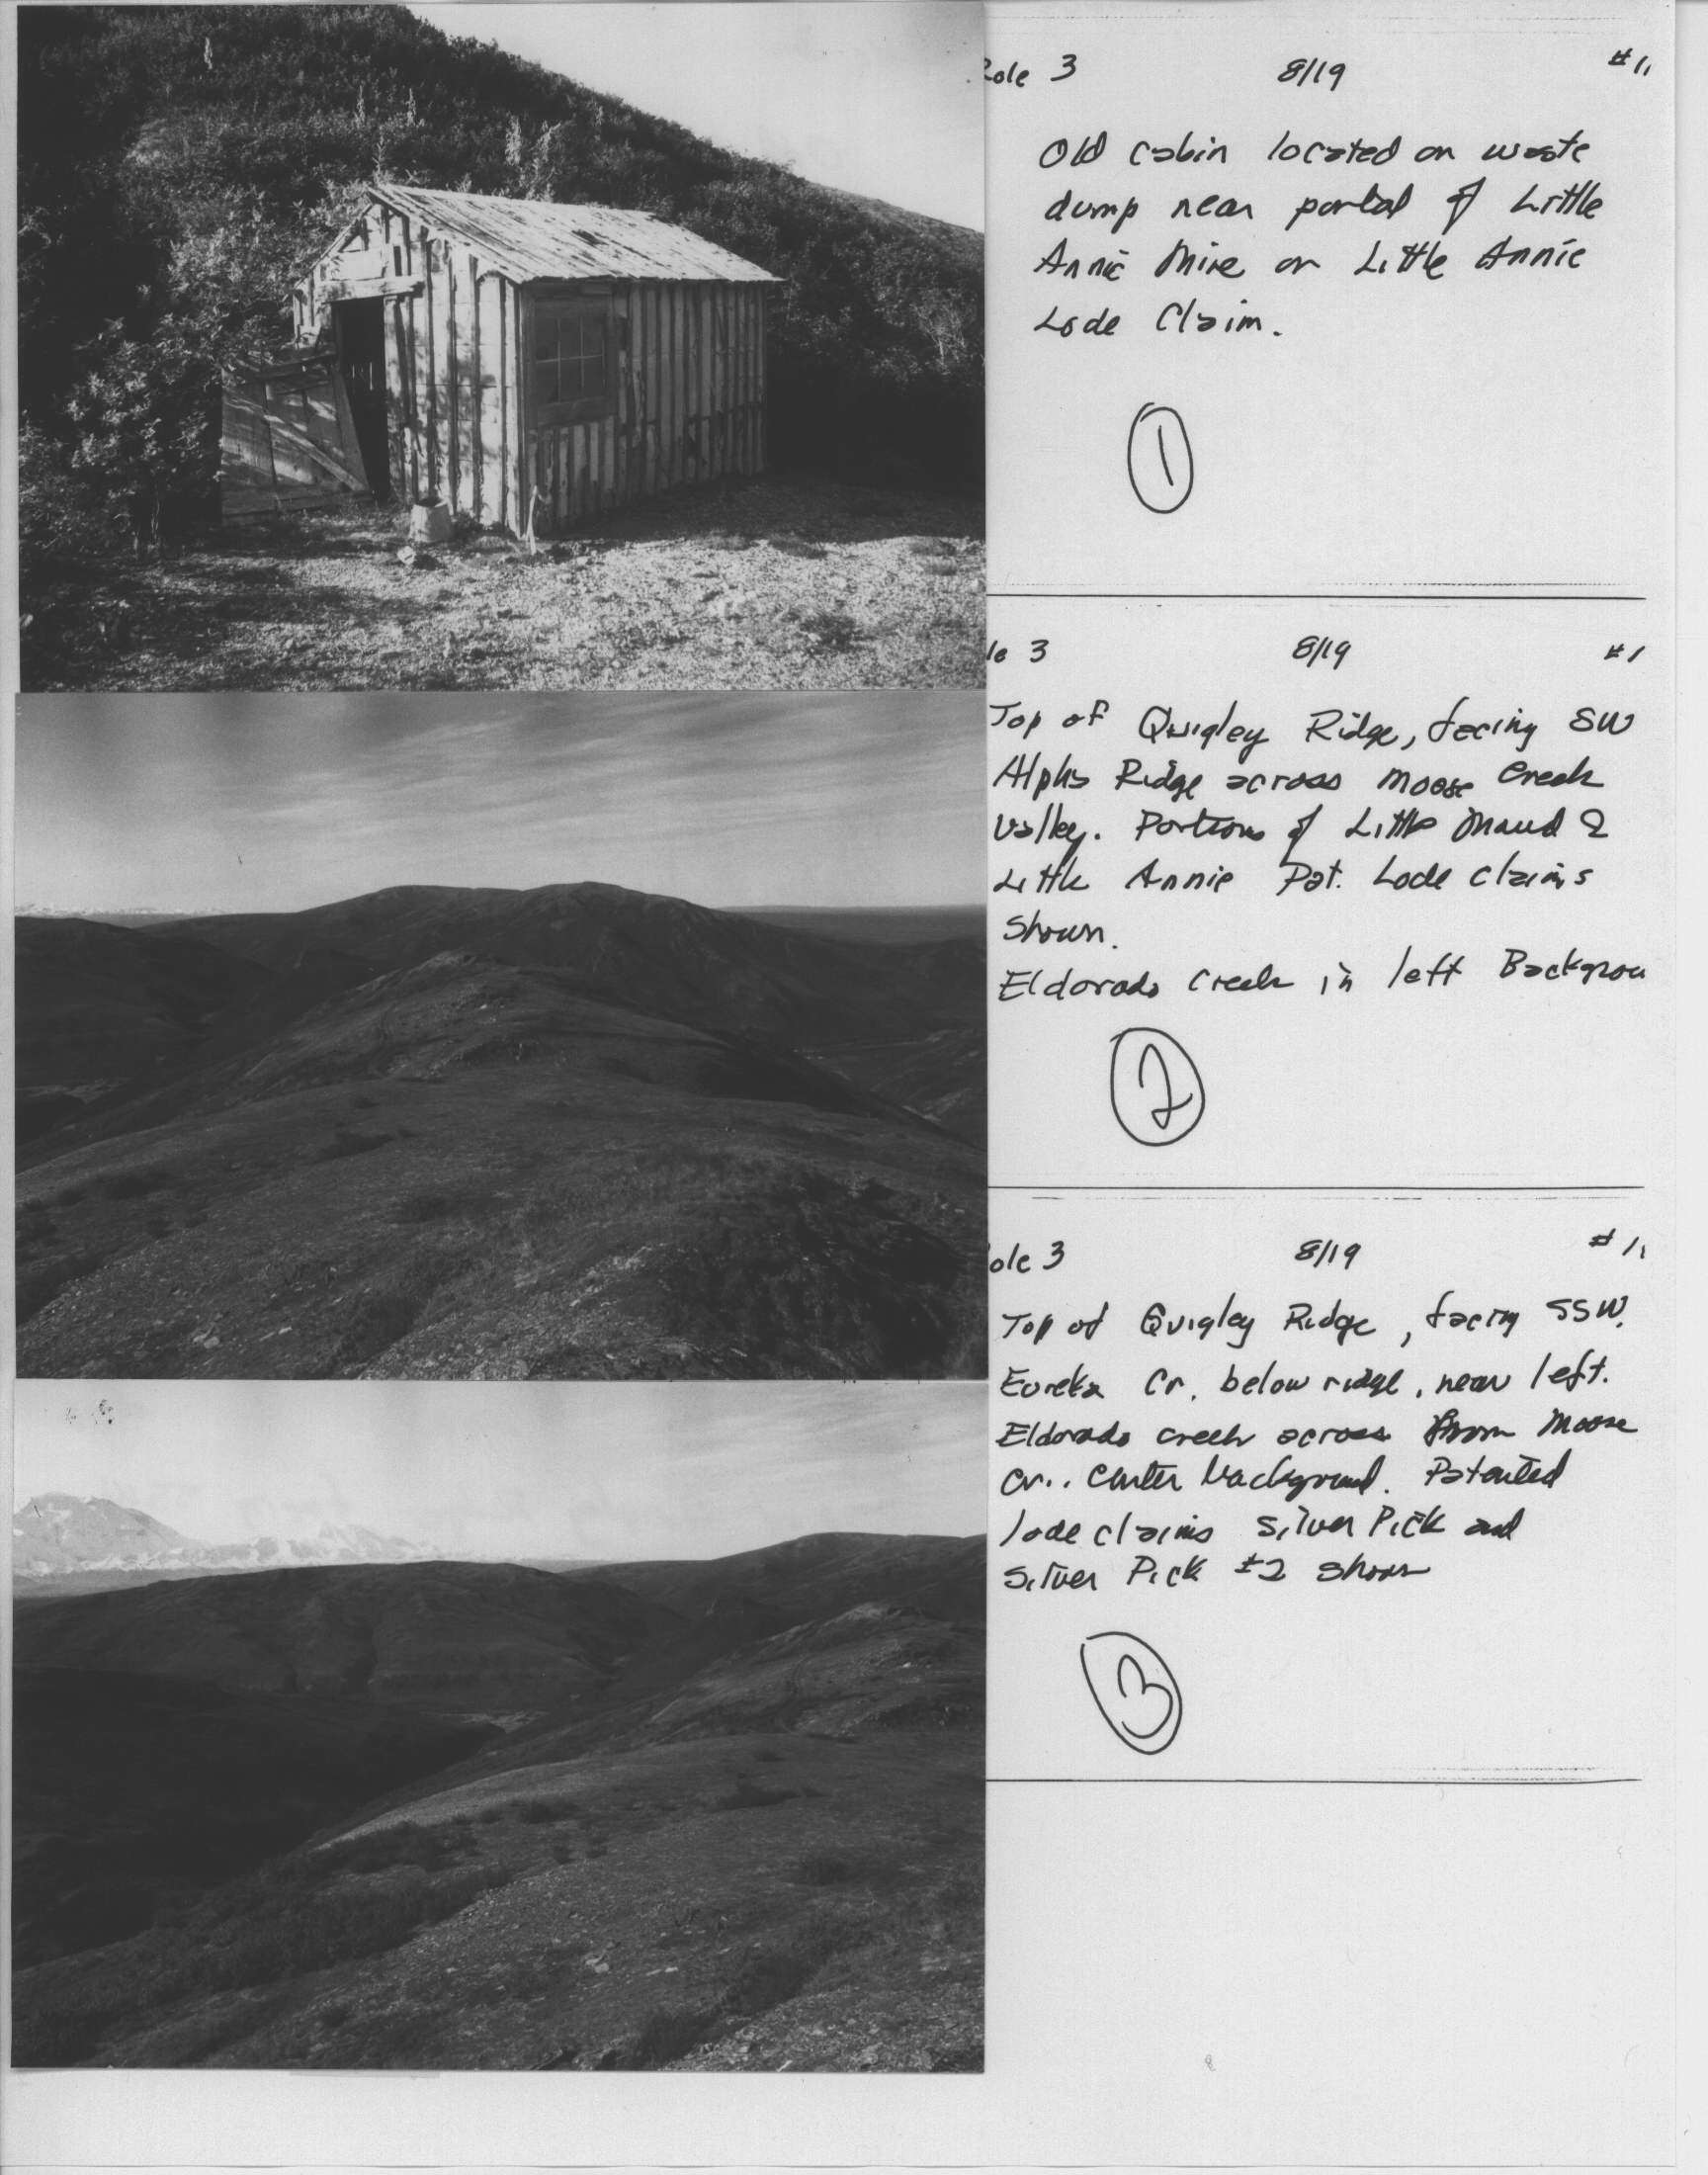 ole 3 8/19 #1
Old cabin located on waste
dump near portal of Little
Annie Mine on Little Annie
Lode Claim.
1
le 3 8/19 #1
Top of Quigley Ridge, facing SW
Alpha Ridge across Moose Creek
Valley. Portions of Little Maud &
Little Annie Pat. Lode claims
Shown.
Eldorado Creek in left Backgrou
2
ole 3 8/19 #1
Top of Quigley Ridge, facing SSW.
Eureka Cr. below ridge, near left.
Eldorado creek across from Moose
Cr.. Center background. Patented
lode claims Silver Pick and
Silver Pick #2 shown
3